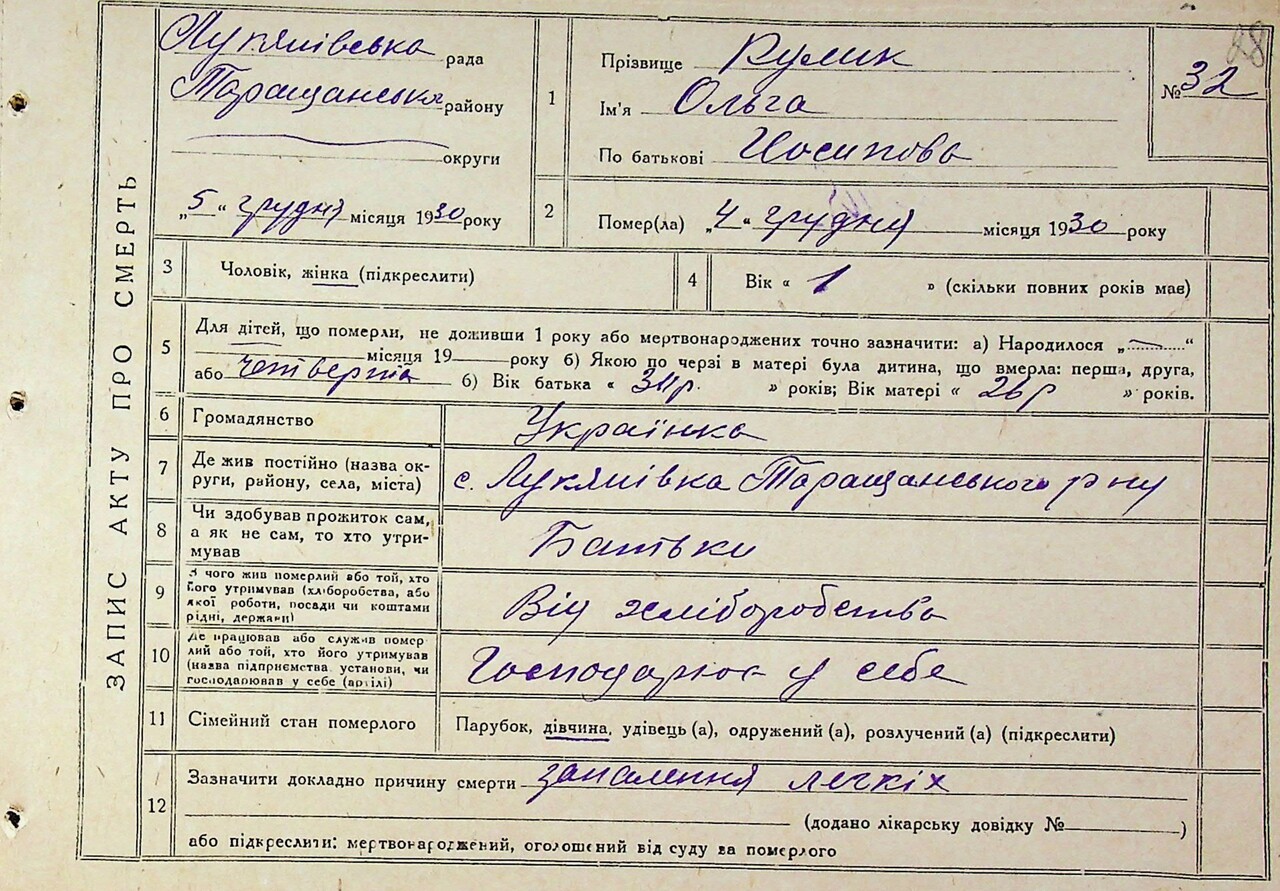 ЗАПИС АКТУ ПРО СМЕРТЬ
Лукянівська рада
Таращанська району
округи
„5“ грудня місяця 1930 року
88
№ 32
1
Прізвище Кулик
Ім'я Ольга
По батькові Йосипова
2
Помер(ла) „4“ грудня місяця 1930 року
3
Чоловік, жінка (підкреслити)
4
Вік « 1 » (скільки повних років має)
5
Для дітей, що померли, не доживши 1 року або мертвонароджених точно зазначити: а) Народилося „ “
місяця 19 року б) Якою по черзі в матері була дитина, що вмерла: перша, друга,
або четверта б) Вік батька « 34р. » років; Вік матері « 26р » років.
6
Громадянство Українка
7
Де жив постійно (назва ок-
руги, району, села, міста)
с. Лукянівка Таращанського р ну
8
Чи здобував прожиток сам,
а як не сам, то хто утри-
мував
Батьки
9
З чого жив померлий або той, хто
його утримував (хліборобства, або
якої роботи, посади чи коштами
рідні, держави)
Від хліборобства
10
Де працював або служив помер
лий або той, хто його утримував
(назва підприємства установи, чи
господарював у себе (артілі)
Господарює у себе
11
Сімейний стан померлого
Парубок, дівчина, удівець (а), одружений (а), розлучений (а) (підкреслити)
12
Зазначити докладно причину смерти запалення легкіх
(додано лікарську довідку № )
або підкреслити: мертвонароджений, оголошений від суду за померлого